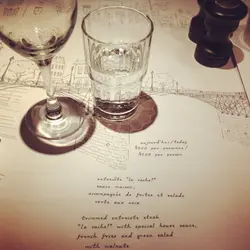 aujourd'hui/today
entrecôte "la vache!"
sauce maison,
accompagnée de frites et salade
verte aux noix
trimmed entrecote steak
"la vache!" with special house sauce,
french fries and green salad
with walnuts